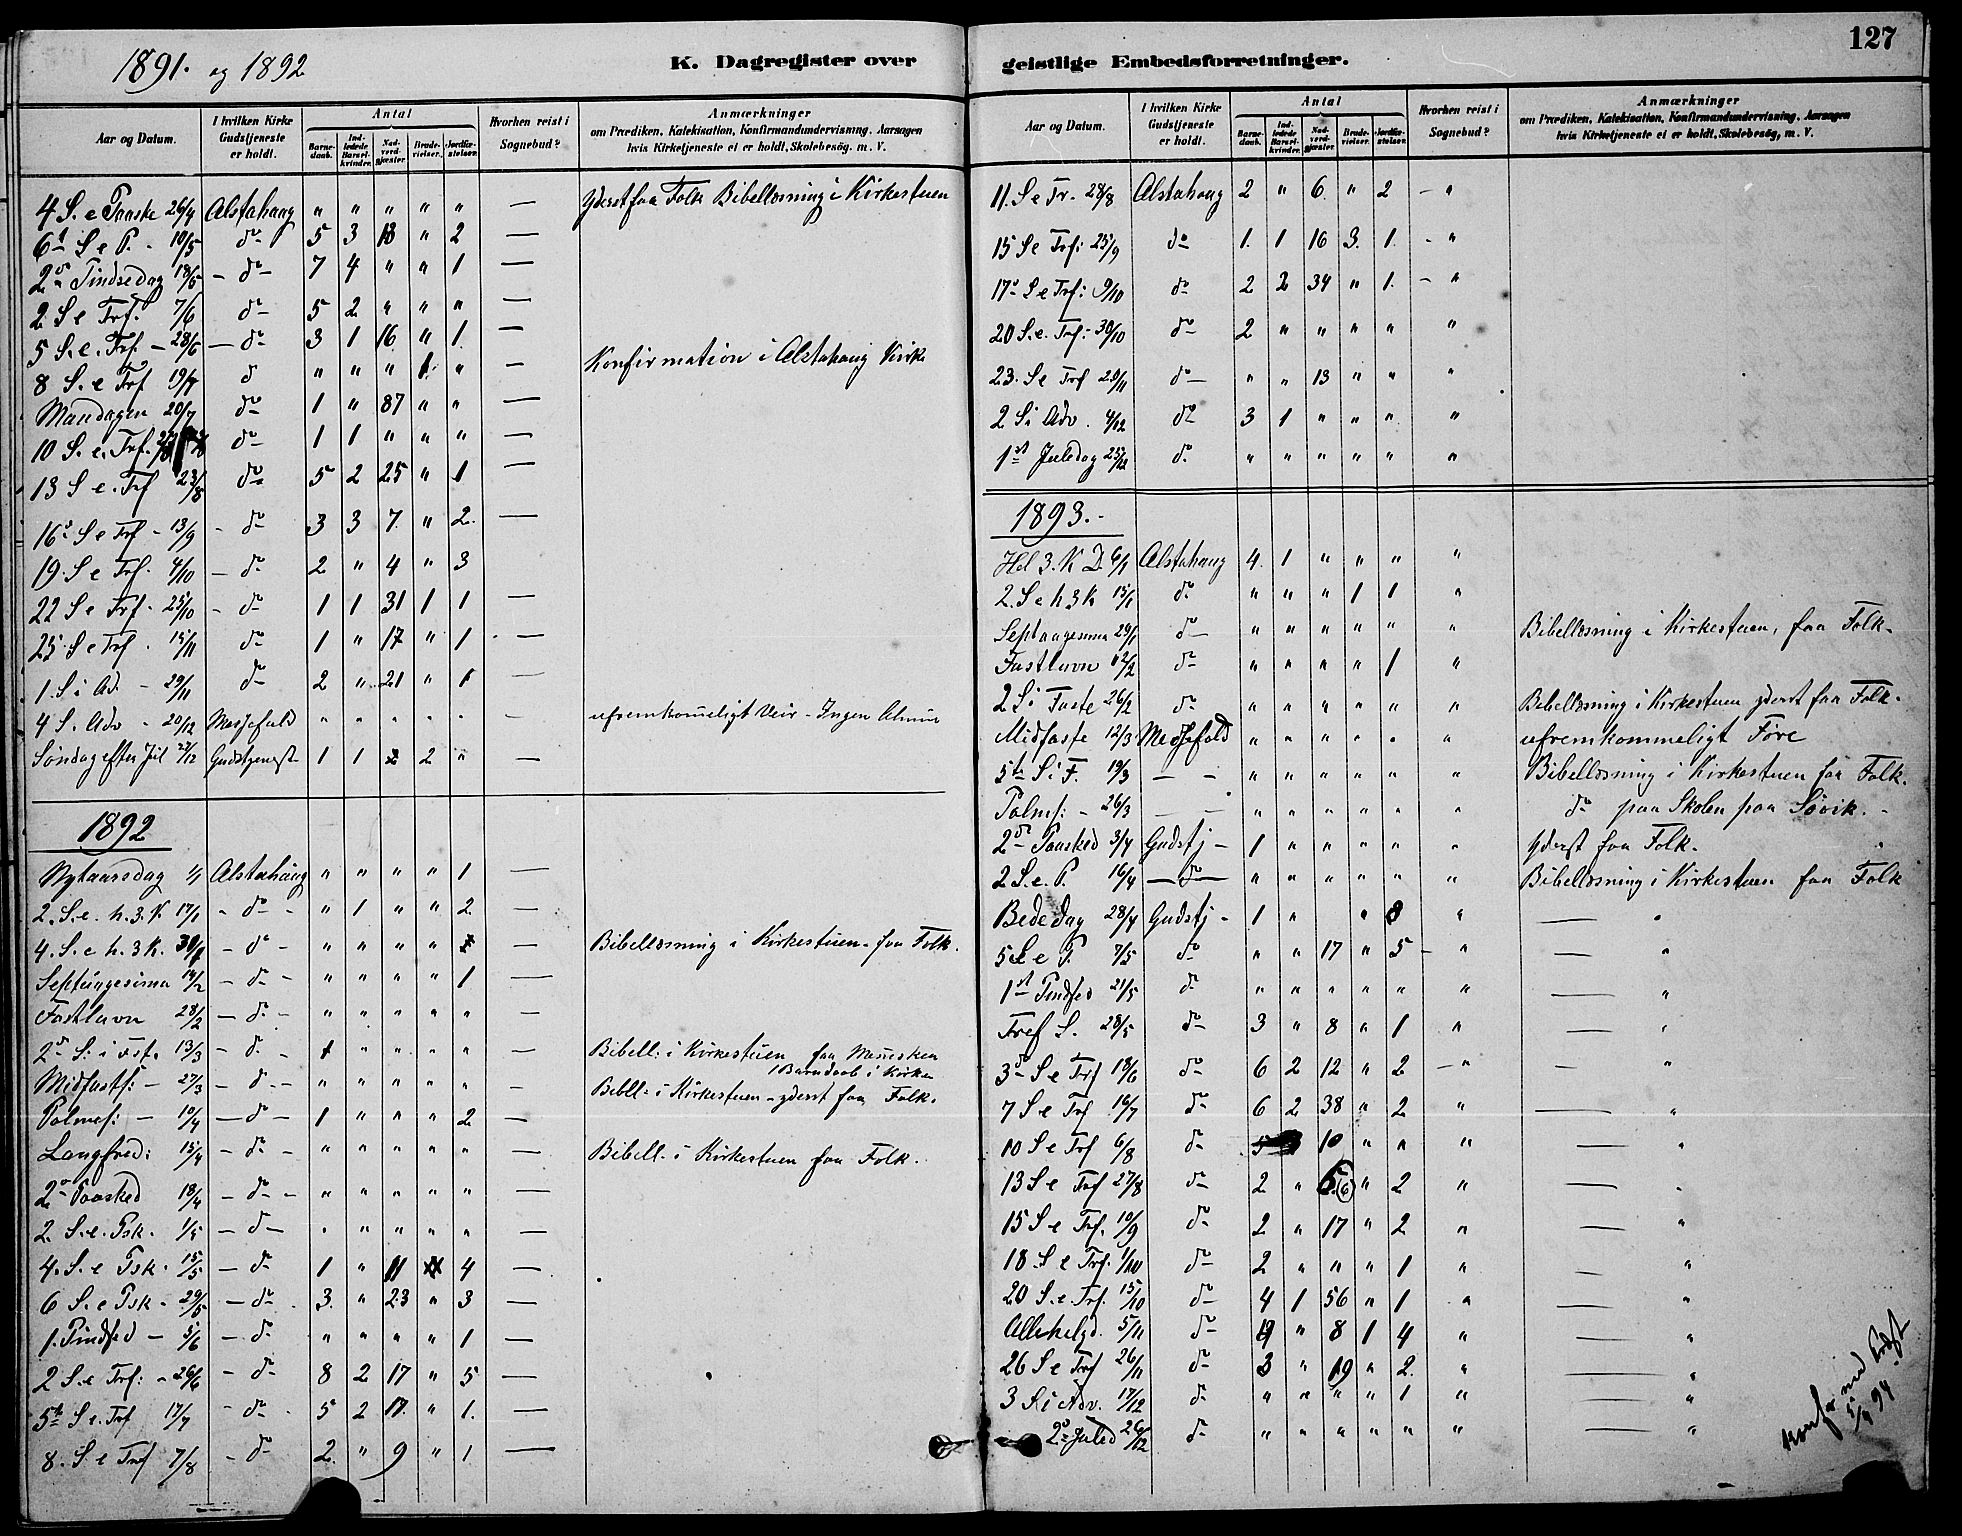 127
1891. og 1892
K. Dagregister over geistlige Embedsforretninger.
Aar og Datum. | I hvilken Kirke Gudstjeneste er holdt. | Antal | Barnedaab. | Indledede Barselkvinder. | Nadverdgjæster. | Brudevielser. | Jordfæstelser. | Hvorhen reist i Sognebud? | Anmærkninger om Prædiken, Katekisation, Konfirmandundervisning, Aarsagen hvis Kirketjeneste ei er holdt, Skolebesög. m. V.
4 S. e Paaske 26/4 Alstahaug " " " " " — Yderst faa Folk Bibellæsning i Kirkestuen
6te S e P. - 10/5 do 5 3 18 " 2 —
2den Pindsedag 18/5 - do - 7 4 " " 1 —
2 S e Trf. 7/6 do 5 2 " " " —
5 S. e. Trf. - 28/6 - do 3 1 16 " 1. —
8 S. e Trf 19/7 d " " " 1. " — Konfirmation i Alstahaug Kirke
Mandagen 20/7 do 1 " 87 " " —
10 S. e. Trf. do 1 1 " " " —
13 S e. Trf 23/8 do 5 2 25 " 1 —
16de S e Trf - 13/9 - do 3 3 7. " 2. —
19. S e Trf. 4/10 - do 2 " 4 " 3
22 S e Trf - 25/10 - do 1 1 31 1 1 —
25 S e Trf. 15/11 do 1 " 17 " 1. —
1. S i Ad. - 29/11 do 2 " 21 " 1 —
4 S. Adv - 20/12 Messefald " " " " " — ufremkomeligt Veir - Ingen Almue
Søndag efter Jul 27/12 Gudstjenest 1 1 2 2 " —
1892
Nytaarsdag 1/1 Alstahaug " " " " 1 —
2. S. e. h. 3. K. 17/1 - do - " 1 " " 2. —
4. S. e h. 3 K. - do - " " " " — Bibellæsning i Kirkestuen - faa Folk.
Septuagesima 14/2 - do - " " " " 1 —
Fastlavn 28/2 - do - " " " " " —
2den S. i Fst. 13/3 - do - 1 " " " " — Bibell: i Kirkestuen faa Mennesken
1 Barndaab i Kirken
Midfastf: - 27/3 - do - " " " " " — Bibell: i Kirkestuen - yderst faa Folk.
Palmes: - 10/4 - do - 1 " " " 2. —
Langfred: 15/4 - do - " " " " " — Bibell. i Kirkestuen faa Folk.
2den Paasked 18/4 - do - " " " " " —
2. S. e. Psk. 1/5 - do - " " " " " —
4. S. e Psk. 15/5 - do 1 " 11 4 —
6 S. e Psk - 29/5 - do - 3. " 23 " 3 —
1. Pindsed - 5/6 - do - " " " " 1 —
2 S. e Trf: - 26/6 - do 8 2 17 " 5 —
5te S. e. Trf 17/7 - do - 5 2 17. " 1. —
8. S. e Trf 7/8 - do 2. " 9 " 1 —
Aar og Datum. | I hvilken Kirke Gudstjeneste er holdt. | Antal | Barnedaab. | Indledede Barselkvinder. | Nadverdgjæster. | Brudevielser. | Jordfæstelser. | Hvorhen reist i Sognebud? | Anmærkninger om Prædiken, Katekisation, Konfirmandundervisning, Aarsagen hvis Kirketjeneste ei er holdt, Skolebesög, m. V.
11. S e Tr. 28/8 Alstahaug 2 " 6. " 2 - "
15 S e Trf: 25/9 do 1. 1 16 3. 1. - "
17de S e Trf: 9/10 do 2 2 34 " 1. - "
20 S. e. Trf: 30/10 do 2 " " " " "
23. S e Trf 20/11 do " " 13 " " "
2 S i Adv. 4/12 do 3 1 " " " "
1ste Juledag 25/12 do " " " " " "
1893. -
Hel 3. K D. 6/1 Alstahaug 4. 1 " " " "
2. S e h 3 K 15/1 do " " " 1 1 "
Septuagesima 29/1 do " " " " " " Bibellæsning i Kirkestuen, faa Folk.
Fastlavn 12/2 do " " " " 1 "
2 S i Faste 26/2 do " " " " " " Bibellæsning i Kirkestuen yderst faa Folk.
Midfaste 12/3 Messefald " " " " " " ufremkommeligt Føre
5te S i F. 19/3 - - " " " " " " Bibellæsning i Kirkestuen faa Folk.
Palmes: - 26/3 - - " " " " " " do paa Skolen paa Søvik. -
2den Paasked 3/4 Gudstj - 1 " " " " " Yderst faa Folk.
2. S. e. P. 16/4 - do - " " " " " " Bibellæsning i Kirkestuen faa Folk
Bededag 28/4 Gudstj - 1 " " 8 " — "
5 S e P. 7/5 do " " 17 " 5 - " — "
1ste Pindsed 21/5 do " " " " " " — "
Tref S. 28/5 do 3 " 8 " 1 " — "
3die S e Trf 18/6 do 6 2 12 " 2 - " — "
7 S e Trf 16/7 do 6 2 38 " 2 " — "
10 S e Trf 6/8 do 5 10 " " " — "
13 S e Trf 27/8 do 2 " 6 (6) " 2 " — "
15 S e Trf. 10/9 do 2 " 17 " 2 " — "
18 S e Trf. 1/10 do 2 " " " 1 " — "
20 S. e. Trf. 15/10 do 4 1 56 " 1 " — "
Allehelgd. 5/11 do " 8 1 4 " — "
26 S e Trf 26/11 do 3 " 19 " 2. " — "
3 S i Adv. 17/12 do " " " " 1 " — "
2den Juled 26/12 do " " " " " " — "
Konfr med
94